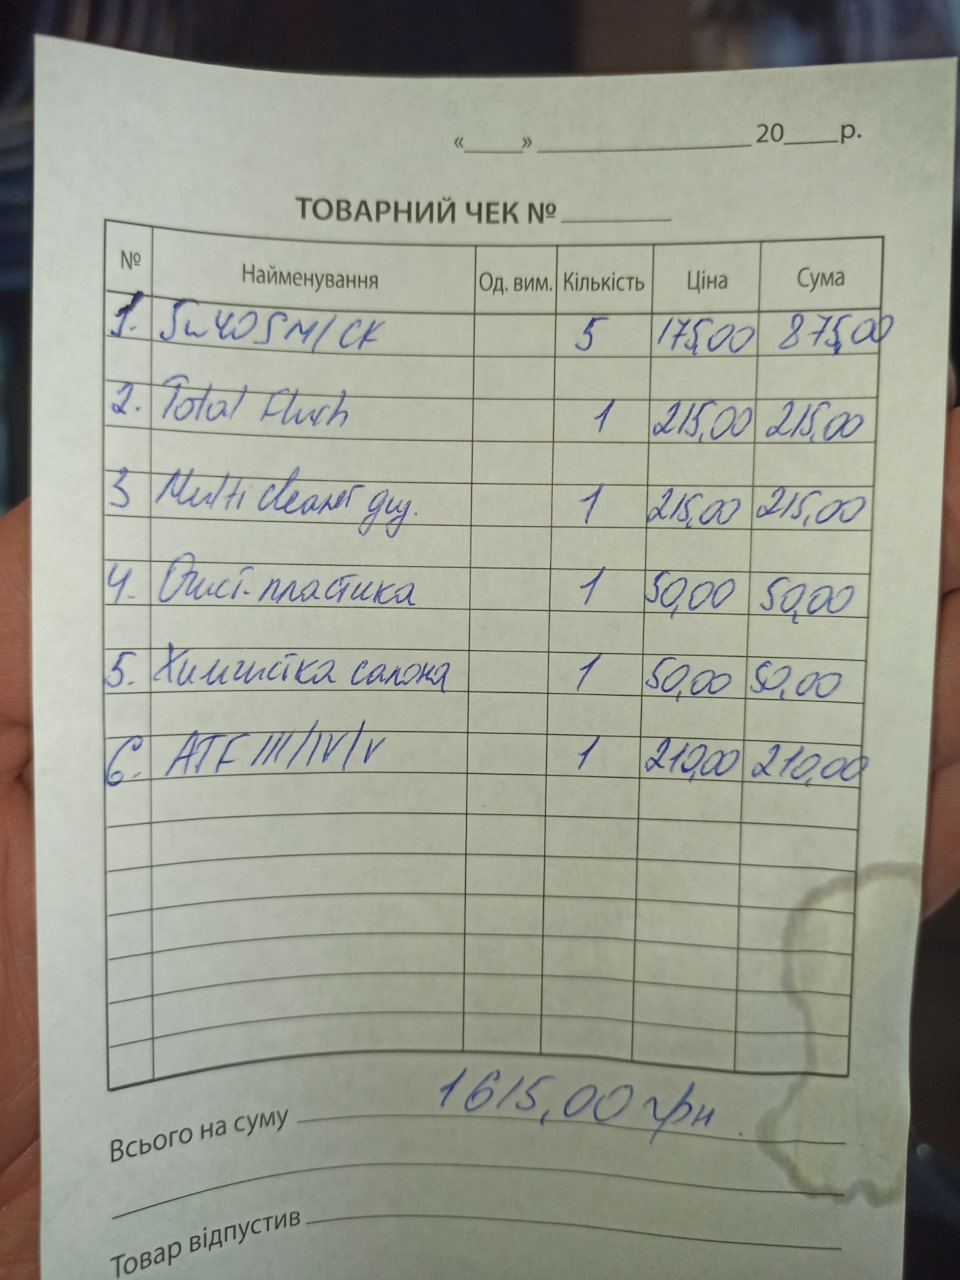 «____» ____________ 20____р.
ТОВАРНИЙ ЧЕК № ________
№ Найменування Од. вим. Кількість Ціна Сума
1. 5w40 SM/CK 5 175,00 875,00
2. Total Flush 1 215,00 215,00
3 Multi cleaner 1 215,00 215,00
4. Очист. пластика 1 50,00 50,00
5. Химчистка салона 1 50,00 50,00
6. ATF III/IV/V 1 210,00 210,00
Всього на суму 1615,00 грн
Товар відпустив